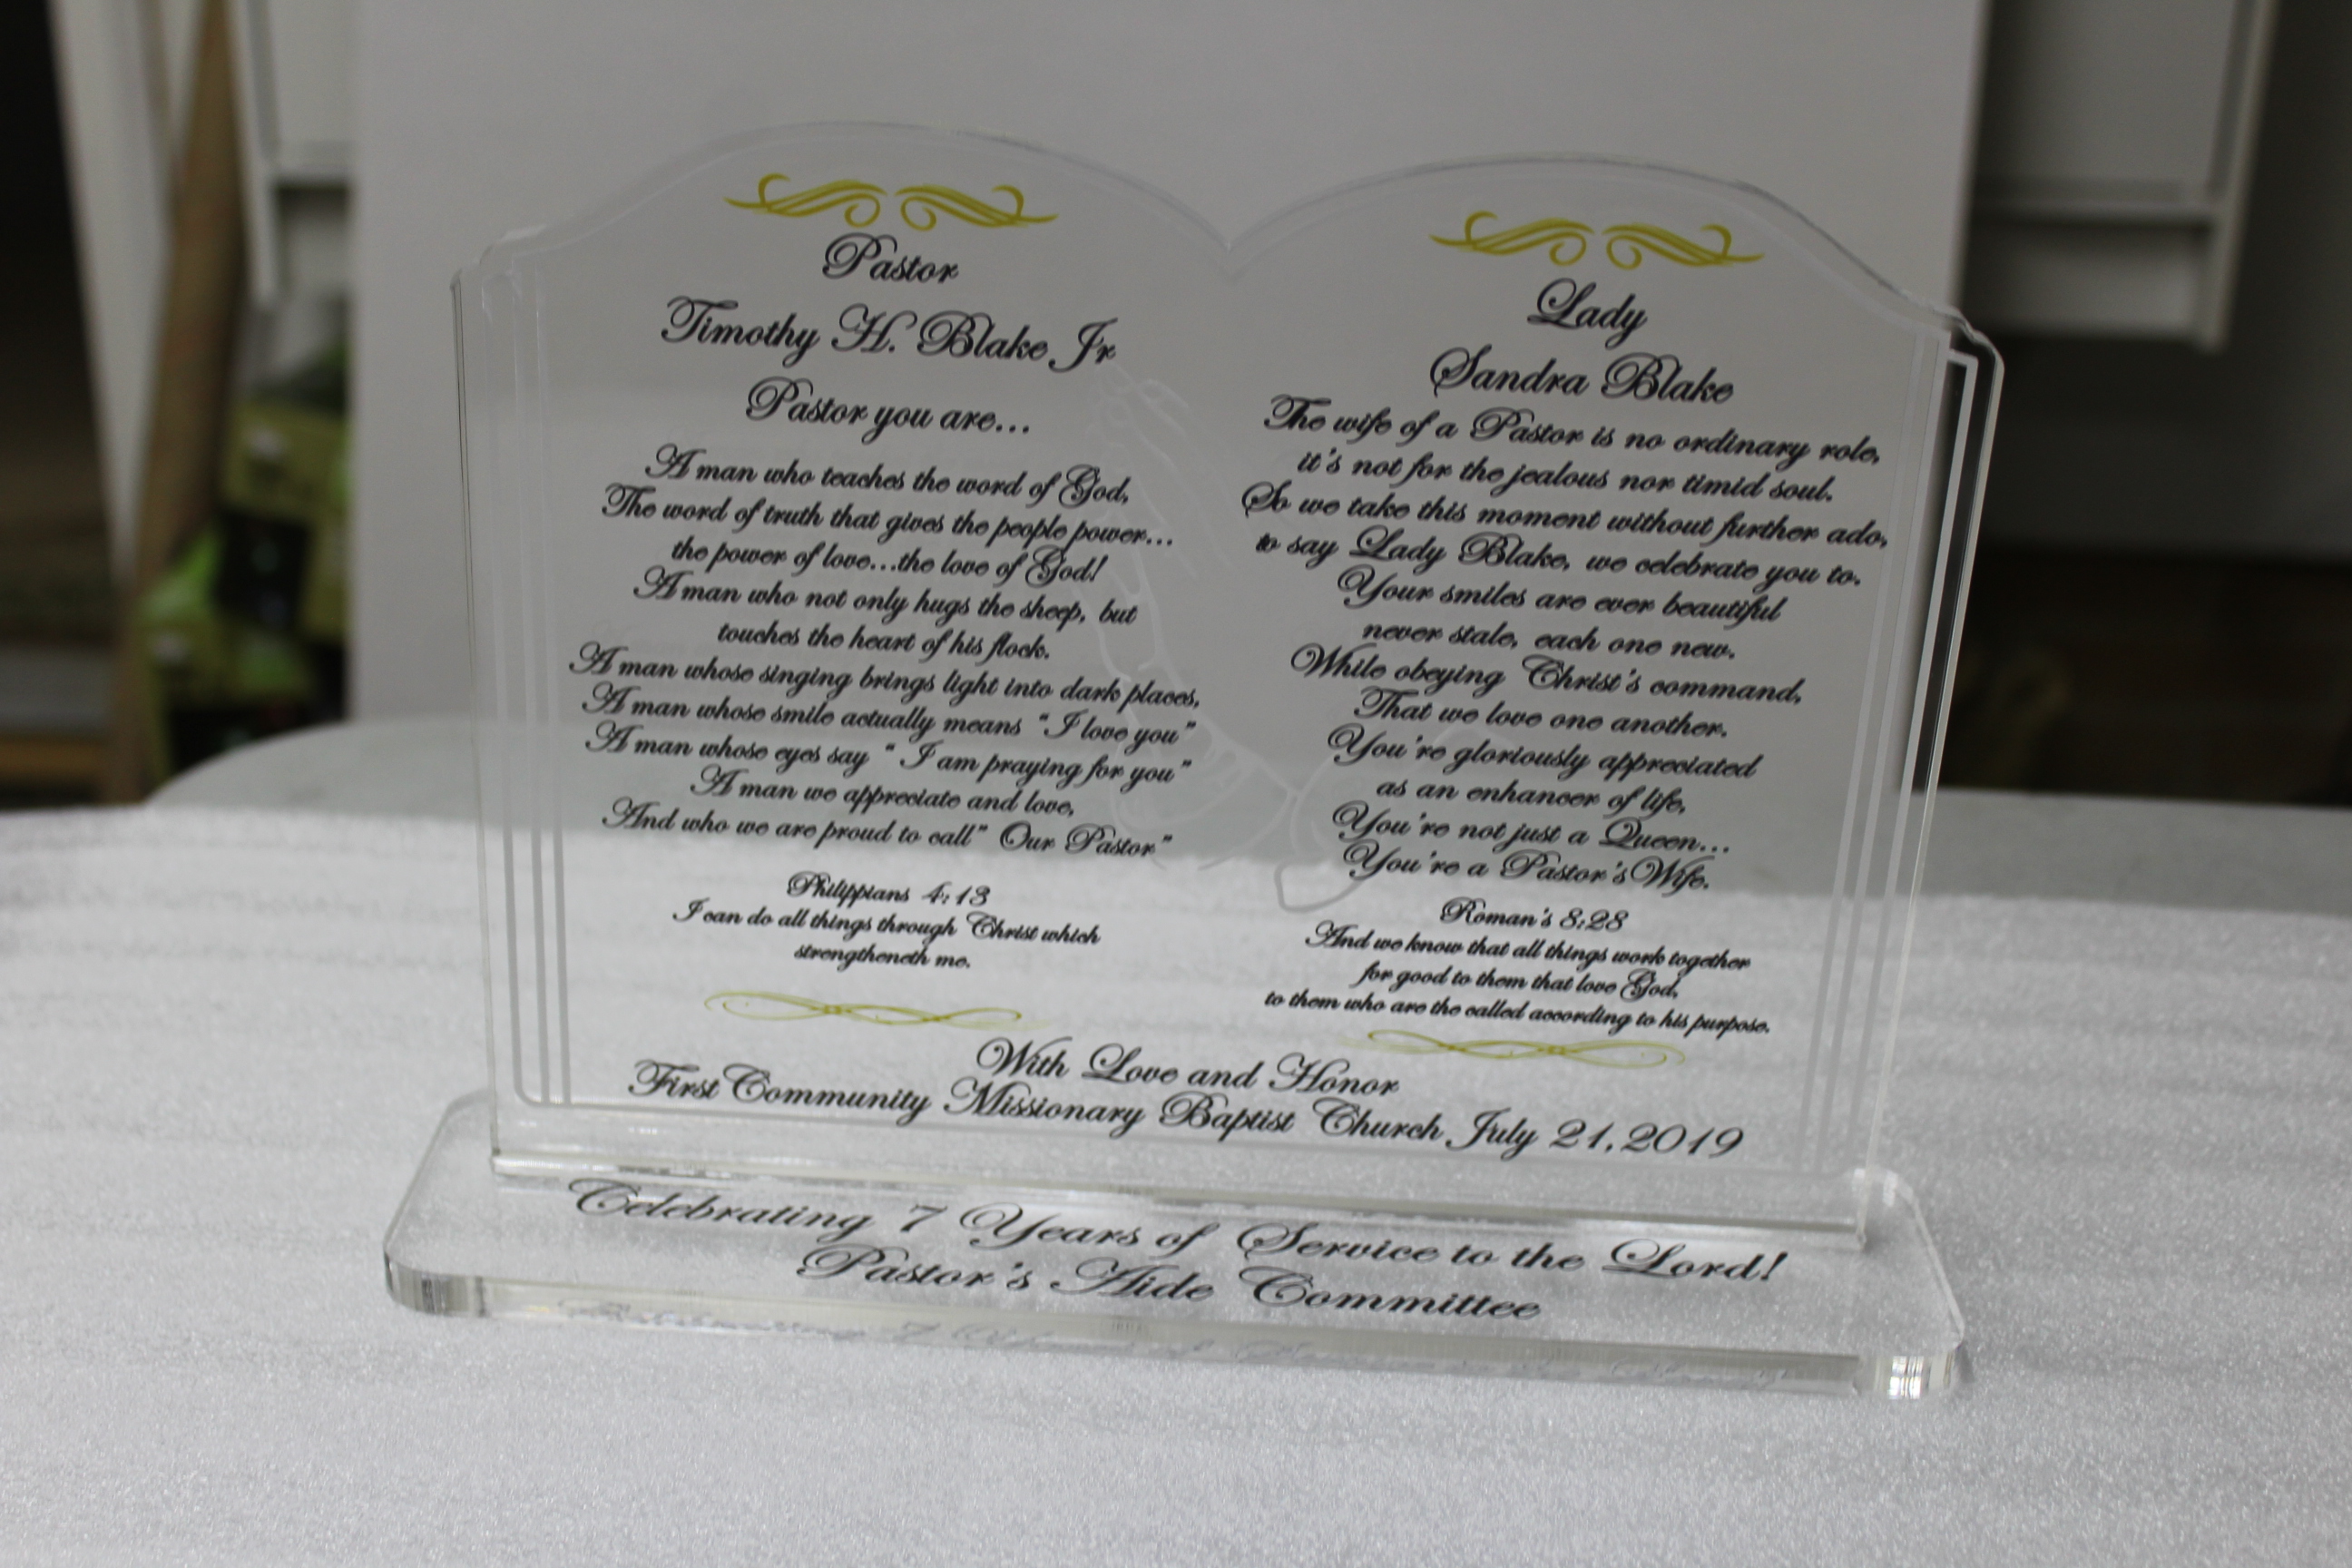 Pastor
Timothy H. Blake Jr
Pastor you are...
A man who teaches the word of God,
The word of truth that gives the people power...
the power of love...the love of God!
A man who not only hugs the sheep, but
touches the heart of his flock.
A man whose singing brings light into dark places,
A man whose smile actually means "I love you"
A man whose eyes say " I am praying for you"
A man we appreciate and love,
And who we are proud to call" Our Pastor"
Philippians 4:13
I can do all things through Christ which
strengtheneth me.
Lady
Sandra Blake
The wife of a Pastor is no ordinary role,
it's not for the jealous nor timid soul.
So we take this moment without further ado,
to say Lady Blake, we celebrate you to.
Your smiles are ever beautiful
never stale, each one new.
While obeying Christ's command,
That we love one another.
You're gloriously appreciated
as an enhancer of life,
You're not just a Queen...
You're a Pastor's Wife.
Roman's 8:28
And we know that all things work together
for good to them that love God,
to them who are the called according to his purpose.
With Love and Honor
First Community Missionary Baptist Church July 21, 2019
Celebrating 7 Years of Service to the Lord!
Pastor's Aide Committee